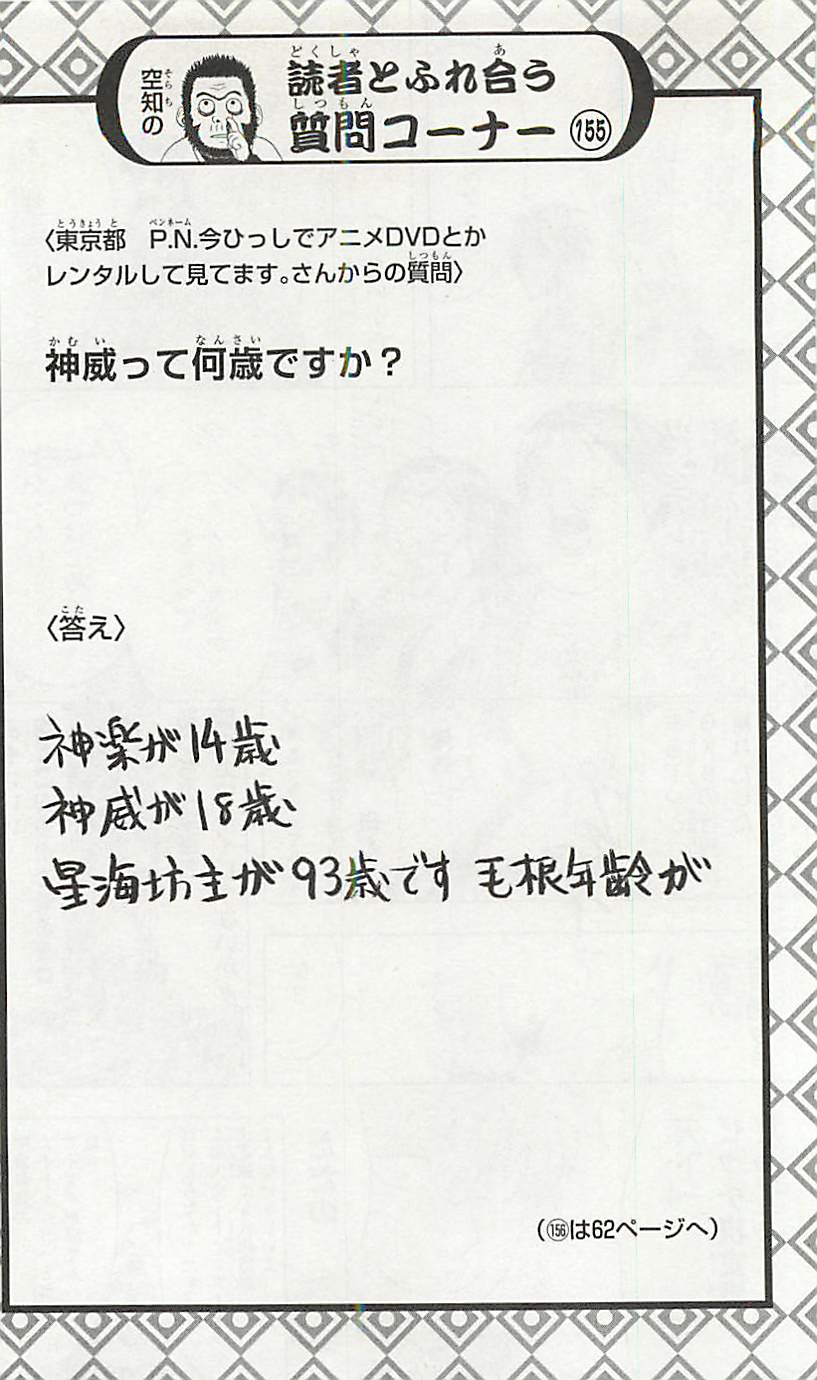 空知の
読者とふれ合う
質問コーナー 155
〈東京都　P.N.今ひっしでアニメDVDとか
レンタルして見てます。さんからの質問〉
神威って何歳ですか？
〈答え〉
神楽が14歳
神威が18歳
星海坊主が93歳です 毛根年齢が
（156は62ページへ）